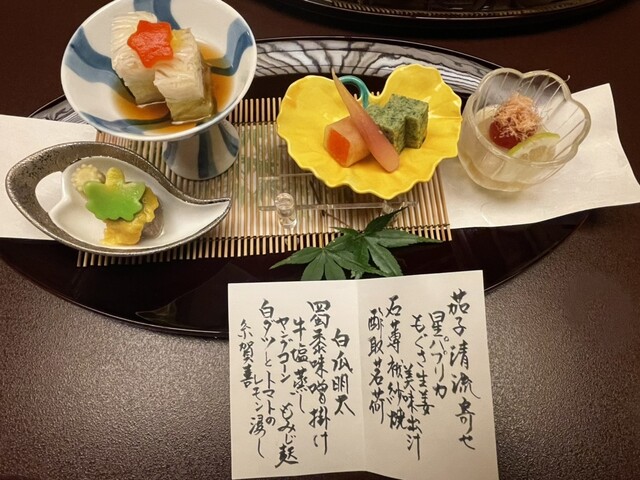 茄子清流寄せ
星パプリカ
もぐさ生姜
美味出汁
石蓴袱紗焼
酢取茗荷
白瓜明太
蜀黍味噌掛け
牛塩蒸し
ヤングコーン もみじ麩
白ダツとトマトの
レモン浸し
糸賀喜